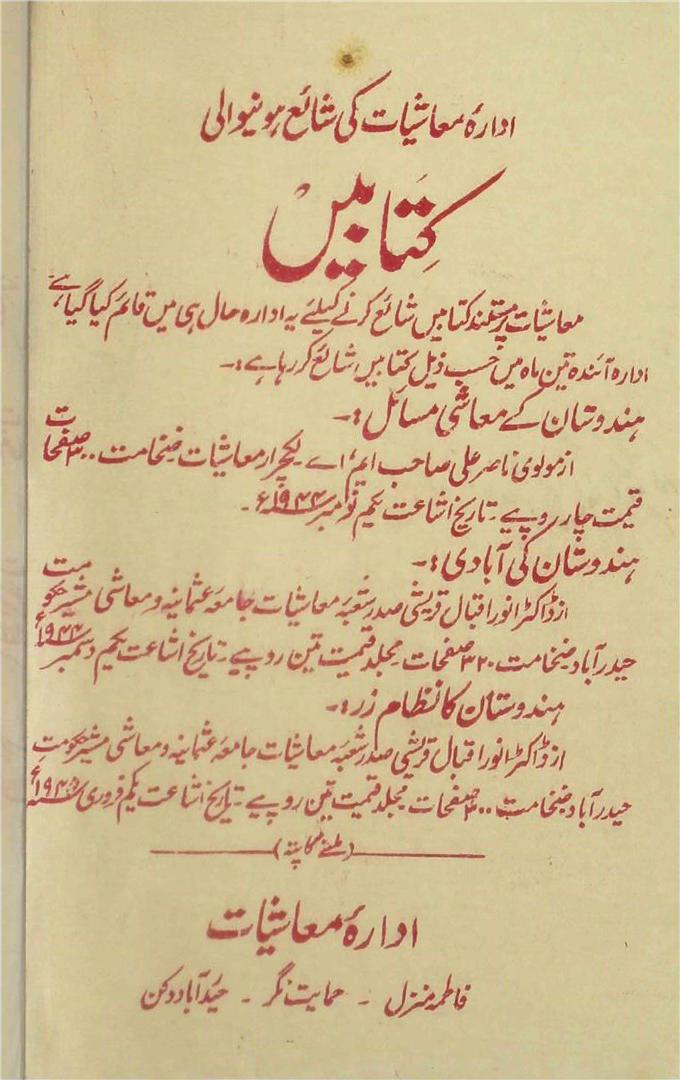 ادارۂ معاشیات کی شائع ہونیوالی
کتابیں
معاشیات پر مستند کتابیں شائع کرنے کیلئے یہ ادارہ حال ہی میں قائم کیا گیا ہے
ادارہ آئندہ تین ماہ میں حسب ذیل کتابیں شائع کر رہا ہے :۔
ہندوستان کے معاشی مسائل :۔
از مولوی ناصر علی صاحب ایم، اے لکچرار معاشیات ضخامت ۳۰۰ صفحات
قیمت چار روپیے ۔ تاریخ اشاعت یکم نومبر ۱۹۴۴ء ۔
ہندوستان کی آبادی :۔
از ڈاکٹر انور اقبال قریشی صدر شعبۂ معاشیات جامعہ عثمانیہ و معاشی مشیر حکومت
حیدرآباد ضخامت ۳۲۰ صفحات مجلد قیمت تین روپیے ۔ تاریخ اشاعت یکم دسمبر ۱۹۴۴ء
ہندوستان کا نظام زر :۔
از ڈاکٹر انور اقبال قریشی صدر شعبۂ معاشیات جامعہ عثمانیہ و معاشی مشیر حکومت
حیدرآباد ضخامت ۳۰۰ صفحات مجلد قیمت تین روپیے ۔ تاریخ اشاعت یکم فروری ۱۹۴۵ء
(ملنے کا پتہ)
ادارۂ معاشیات
فاطمہ منزل ۔ حمایت نگر ۔ حیدرآباد دکن